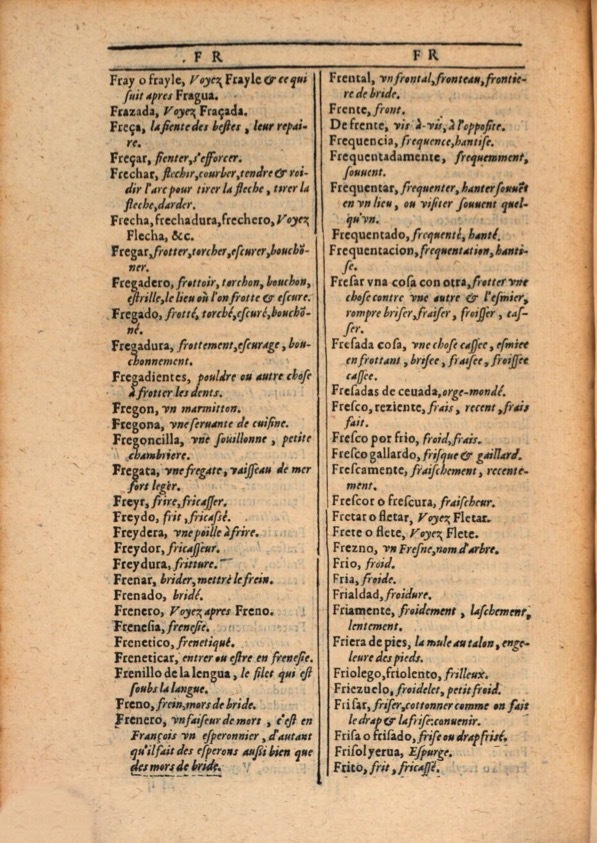 F R
Fray o frayle, Voyez Frayle & ce qui
suit apres Fragua.
Frazada, Voyez Fraçada.
Freça, la fiente des bestes, leur repai-
re.
Freçar, fienter, s'efforcer.
Frechar, flechir, courber, tendre & roi-
dir l'arc pour tirer la fleche, tirer la
fleche, darder.
Frecha, frechadura, frechero, Voyez
Flecha, &c.
Fregar, frotter, torcher, escurer, bouchõ-
ner.
Fregadero, frottoir, torchon, bouchon,
estrille, le lieu où l'on frotte & escure.
Fregado, frotté, torché, escuré, bouchõ-
né.
Fregadura, frottement, escurage, bou-
chonnement.
Fregadientes, pouldre ou autre chose
à frotter les dents.
Fregon, vn marmitton.
Fregona, vne seruante de cuisine.
Fregoncilla, vne souillonne, petite
chambriere.
Fregata, vne fregate, vaisseau de mer
fort leger.
Freyr, frire, fricasser.
Freydo, frit, fricassé.
Freydera, vne poille à frire.
Freydor, fricasseur.
Freydura, fritture.
Frenar, brider, mettre le frein.
Frenado, bridé.
Frenero, Voyez apres Freno.
Frenesia, frenesie.
Frenetico, frenetiqué.
Freneticar, entrer ou estre en frenesie.
Frenillo de la lengua, le filet qui est
soubs la langue.
Freno, frein, mors de bride.
Frenero, vn faiseur de mors, c'est en
François vn esperonnier, d'autant
qu'il fait des esperons aussi bien que
des mors de bride.
F R
Frental, vn frontal, fronteau, frontie-
re de bride.
Frente, front.
De frente, vis à-vis, à l'opposite.
Frequencia, frequence, hantise.
Frequentadamente, frequemment,
souuent.
Frequentar, frequenter, hanter souuẽt
en vn lieu, ou visiter souuent quel-
qu'vn.
Frequentado, frequenté, hanté.
Frequentacion, frequentation, hanti-
se.
Fresar vna cosa con otra, frotter vne
chose contre vne autre & l'esmier,
rompre briser, fraiser, froisser, cas-
ser.
Fresada cosa, vne chose cassee, esmiee
en frottant, brisee, fraisee, froissee
cassee.
Fresadas de ceuada, orge-mondé.
Fresco, reziente, frais, recent, frais
fait.
Fresco por frio, froid, frais.
Fresco gallardo, frisque & gaillard.
Frescamente, fraischement, recente-
ment.
Frescor o frescura, fraischeur.
Fretar o fletar, Voyez Fletar.
Frete o flete, Voyez Flete.
Frezno, vn Fresne, nom d'arbre.
Frio, froid.
Fria, froide.
Frialdad, froidure.
Friamente, froidement, laschement,
lentement.
Friera de pies, la mule au talon, enge-
leure des pieds.
Friolego, friolento, frilleux.
Friezuelo, froidelet, petit froid.
Frisar, friser, cottonner comme on fait
le drap & la frise: conuenir.
Frisa o frisado, frise ou drap frisé.
Frisol yerua, Espurge.
Frito, frit, fricassé.